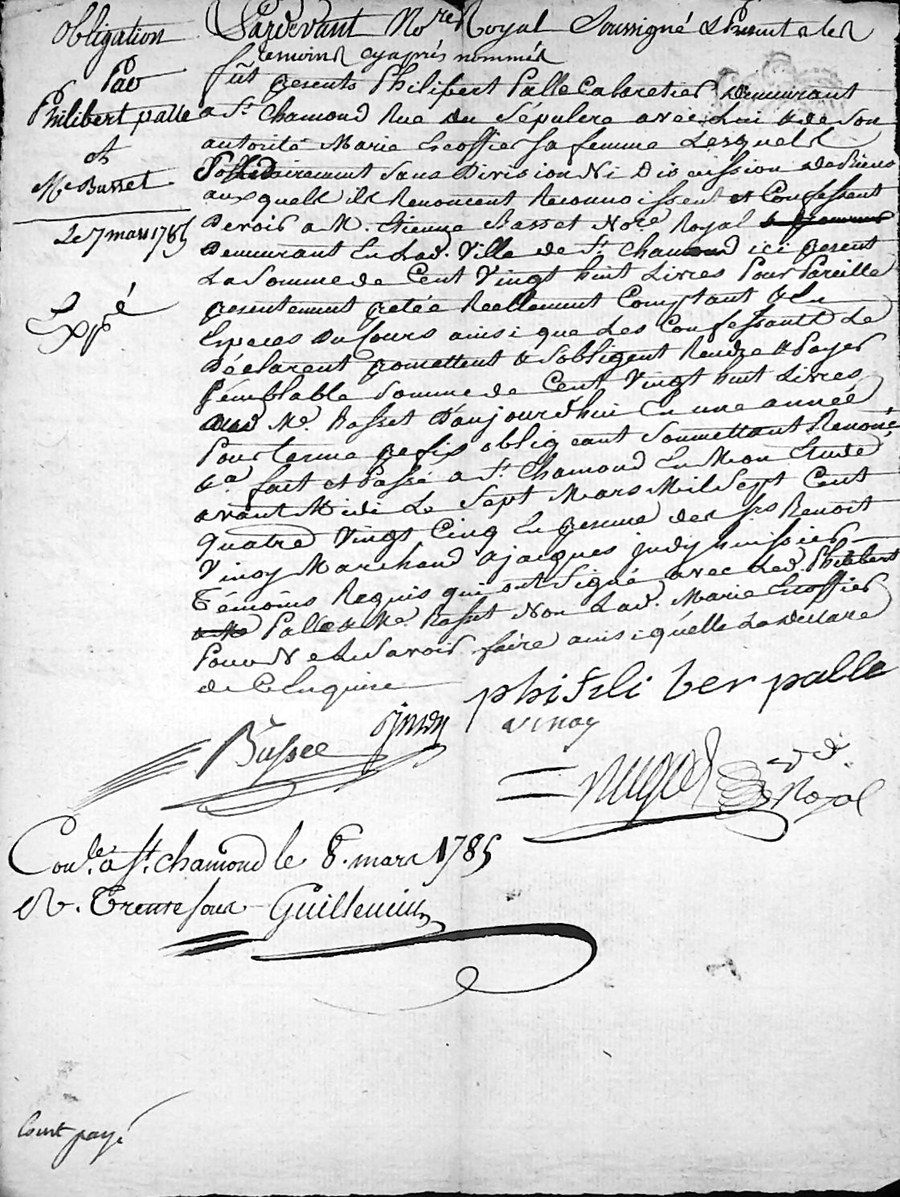 obligation
Par
Philibert palle
et
Me Basset
Le 7 mars 1785
Expé
Pardevant Nore Royal Soussigné & Present et les
temoins cyaprés nommés
fût presents Philibert Palle Cabaretier demeurant
a St. Chamond Rue du Sépulcre avec Lui & de Son
autorité Marie Escoffier Sa femme Lesquels
Solidairement Sans Division Ni Discussion de Biens
auxquels ils Renoncent Reconnoissent et Confessent
Devoir a M. Etienne Basset Nore Royal
Demeurant En Lad. Ville de St. Chamond ici present
La Somme de Cent Vingt huit Livres Pour Pareille
presentement pretée Reellement Comptant & En
Especes Du Cours ainsi que Les Confessants Le
Déclarent promettent & S'obligent Rendre & Payer
Semblable Somme de Cent Vingt huit Livres
aud Me. Basset D'aujourd'hui En une année
Pour terme prefix obligeant Soumettant Renonc
&a fait et Passé a St. Chamond En Mon Etude
avant Midi Le Sept Mars Mil Sept Cent
Quatre Vingt Cinq En presence des Srs Benoit
Vinoy Marchand & jacques judy huissier
Témoins Requis qui ont Signé avec Led. Philibert
Palle & Me. Basset Non Lad. Marie Escoffier
Pour Ne Le Savoir faire ainsi qu'elle La Declaré
de Ce Enquise
phifili ber palle
Basset judy vinoy
Royal
Conle. a St. chamond le 8. mars 1785
R. Trente sous Guillemin
Court payé